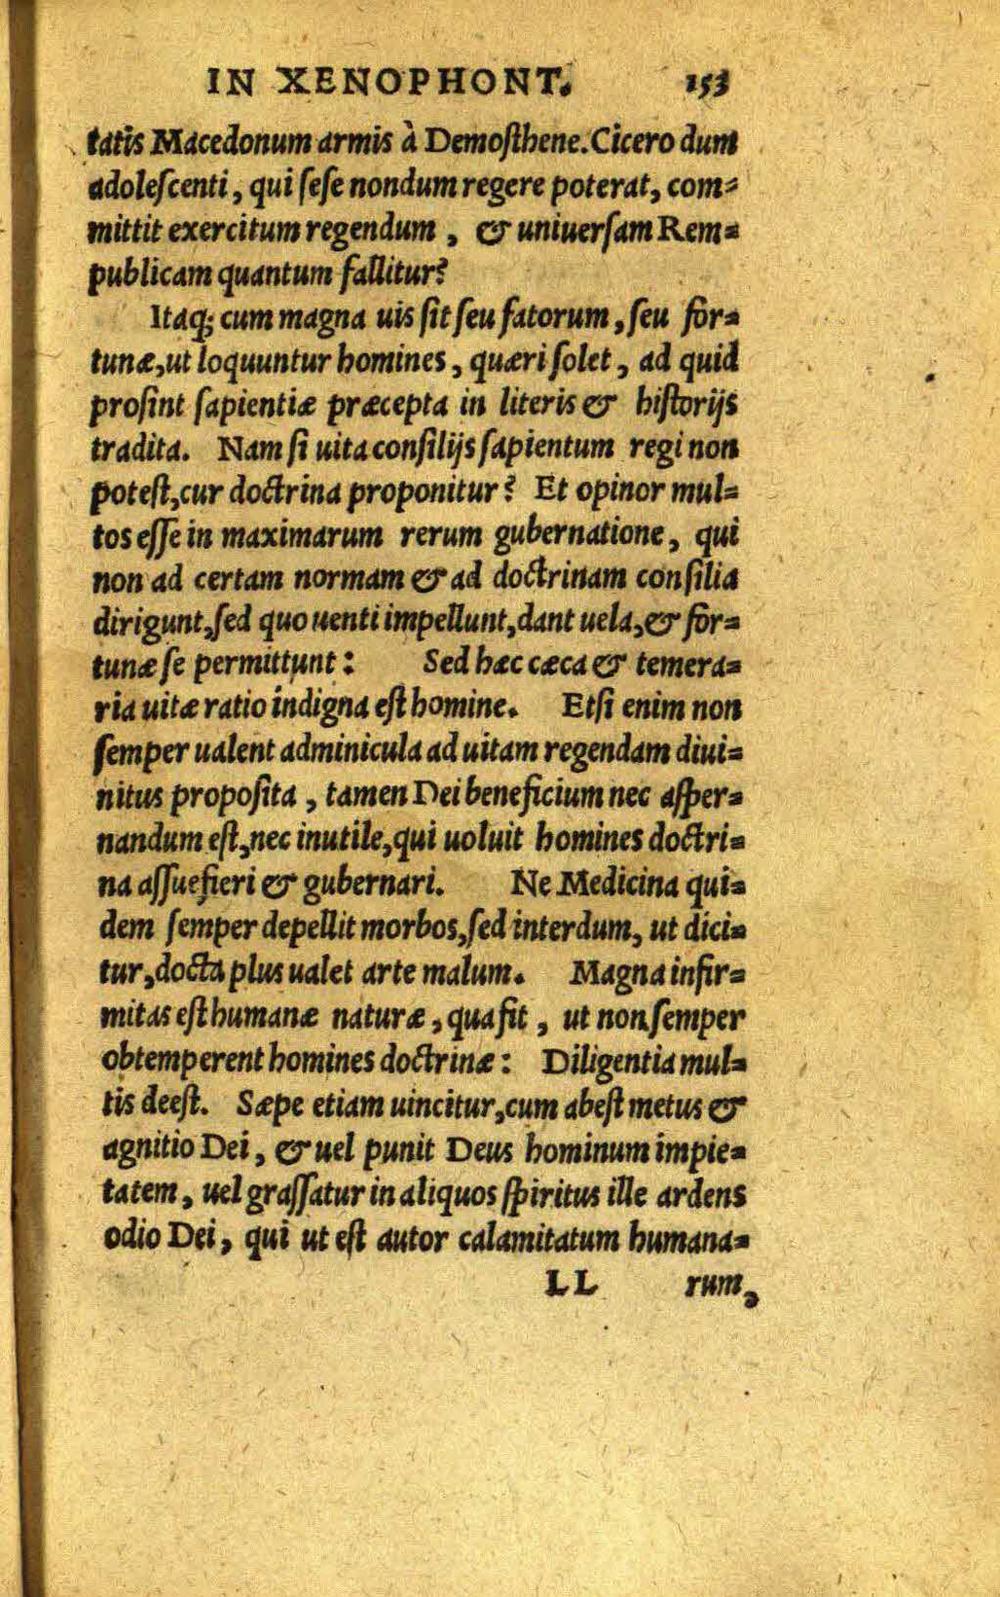 IN XENOPHONT. 153
tatis Macedonum armis à Demosthene. Cicero dum
adolescenti, qui sese nondum regere poterat, com=
mittit exercitum regendum, & uniuersam Rem=
publicam quantum fallitur?
Itaq; cum magna uis sit seu fatorum, seu for=
tunæ, ut loquuntur homines, quæri solet, ad quid
prosint sapientiæ præcepta in literis & historijs
tradita. Nam si uita consilijs sapientum regi non
potest, cur doctrina proponitur? Et opinor mul=
tos esse in maximarum rerum gubernatione, qui
non ad certam normam & ad doctrinam consilia
dirigunt, sed quo uenti impellunt, dant uela, & for=
tunæ se permittunt: Sed hæc cæca & temera=
ria uitæ ratio indigna est homine. Etsi enim non
semper ualent adminicula ad uitam regendam diui=
nitus proposita, tamen Dei beneficium nec asper=
nandum est, nec inutile, qui uoluit homines doctri=
na assuefieri & gubernari. Ne Medicina qui=
dem semper depellit morbos, sed interdum, ut dici=
tur, docta plus ualet arte malum. Magna infir=
mitas est humanæ naturæ, qua fit, ut non semper
obtemperent homines doctrinæ: Diligentia mul=
tis deest. Sæpe etiam uincitur, cum abest metus &
agnitio Dei, & uel punit Deus hominum impie=
tatem, uel grassatur in aliquos spiritus ille ardens
odio Dei, qui ut est autor calamitatum humana=
LL rum,